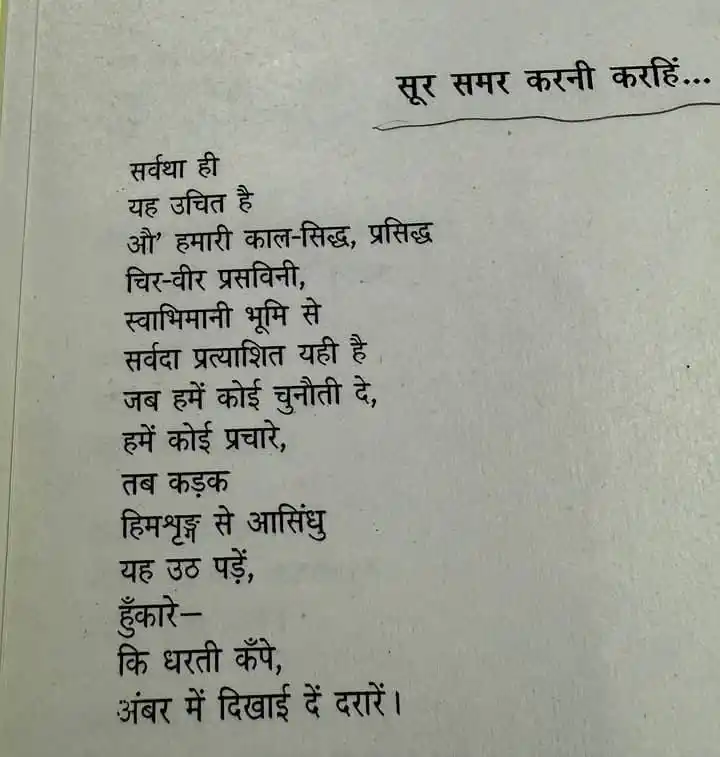 सूर समर करनी करहिं...
सर्वथा ही
यह उचित है
औ' हमारी काल-सिद्ध, प्रसिद्ध
चिर-वीर प्रसविनी,
स्वाभिमानी भूमि से
सर्वदा प्रत्याशित यही है
जब हमें कोई चुनौती दे,
हमें कोई प्रचारे,
तब कड़क
हिमशृङ्ग से आसिंधु
यह उठ पड़ें,
हुँकारे–
कि धरती कँपे,
अंबर में दिखाई दें दरारें।